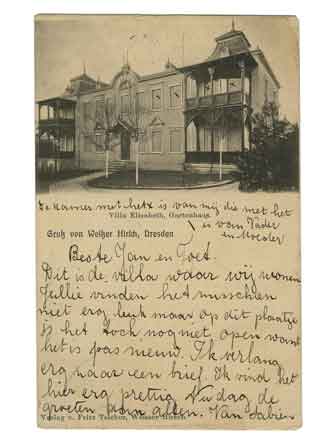 De kamer met het x is van mij die met het
Villa Elisabeth, Gartenhaus.
is van Vader
en Moeder
Gruß von Weißer Hirsch, Dresden
Beste Jan en
Dit is de villa waar wij wonen
Jullie vinden het misschien
niet erg leuk maar op dit plaatje
is het toch nog niet open want
het is pas nieuw. Ik verlang
erg naar een brief. Ik vind het
hier erg prettig. Nu dag de
groeten aan allen. Van
Verlag v. Fritz Weisser Hirsch